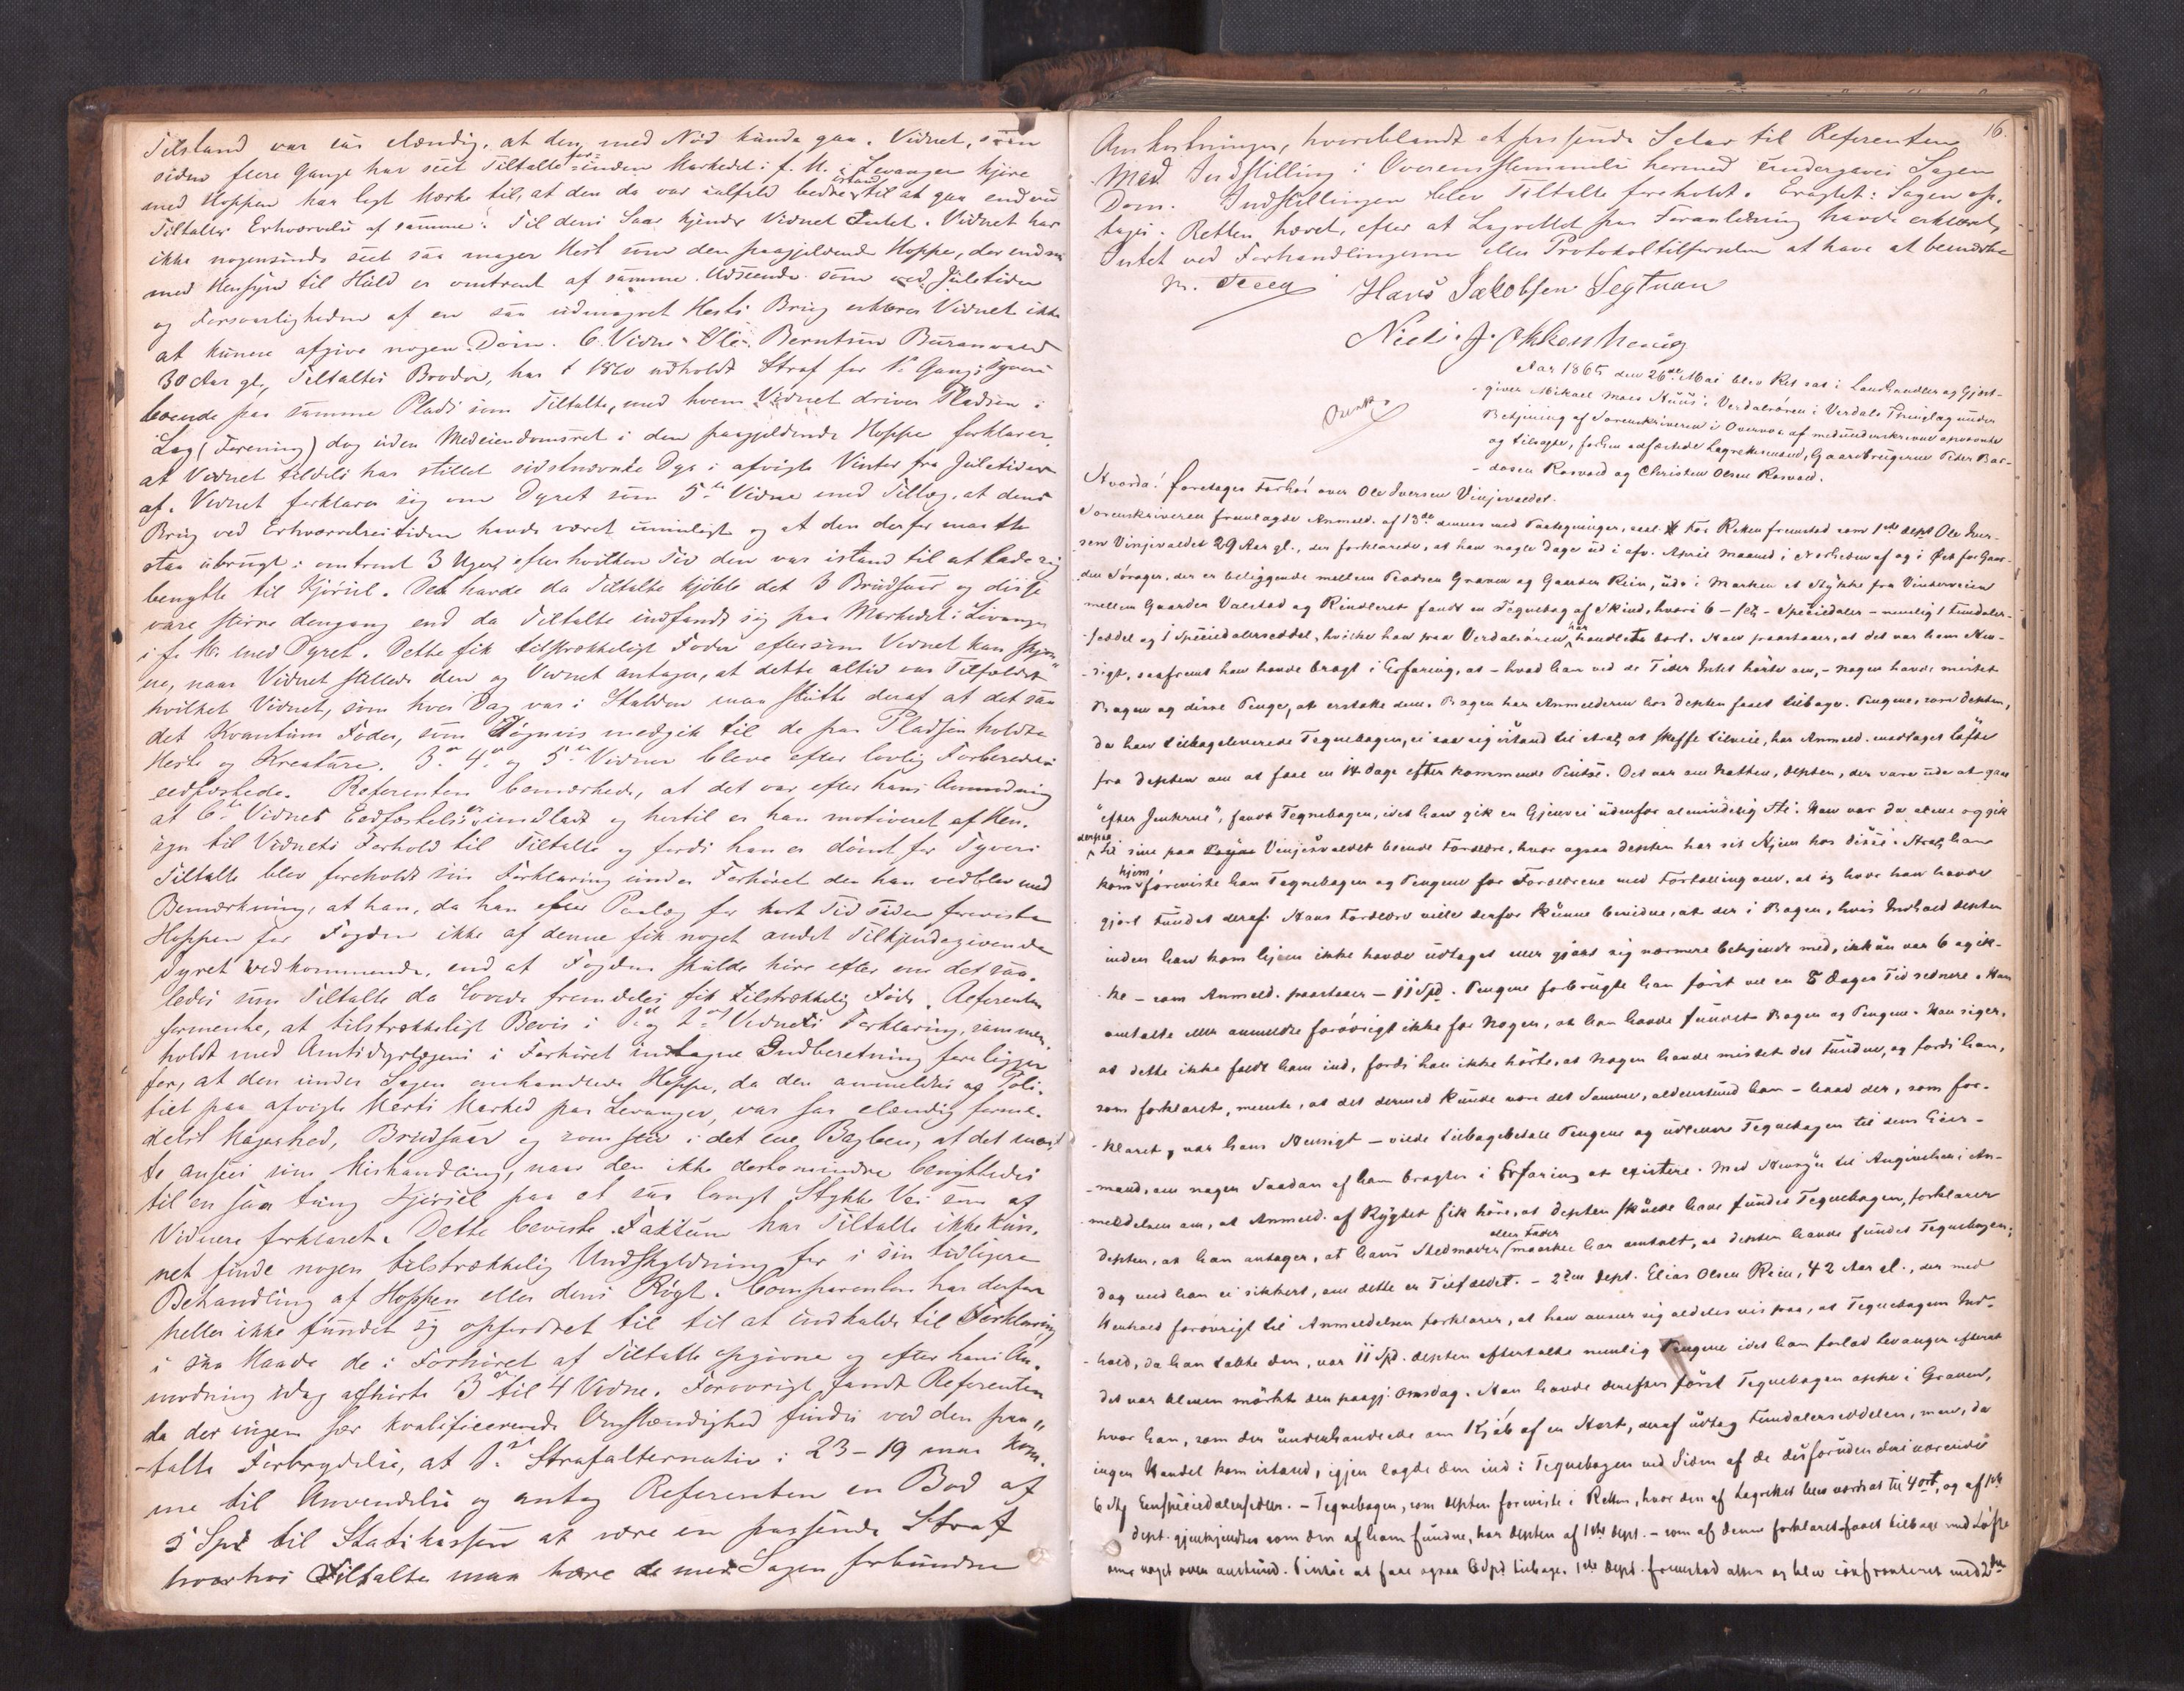 Tilstand var saa elendig, at den med Nød kunde gaa. Vidnet, som
siden flere Gange har seet Tiltalte inden Markedet i f. M. i Levanger kjøre
med Hoppen har lagt Mærke til, at den da var ialfald bedre istand til at gaa end ved
Tiltaltes Erhværvelse af samme. Til dens Saar kjender Vidnet Intet. Vidnet har
ikke nogensinde seet saa mager Hest som den paagjeldende Hoppe, der endnu
med Hensyn til Huld er omtrent af samme Udseende som ved Juletider
og Forsvarligheden af en saa udmagret Hests Brug erklærer Vidnet ikke
at kunne afgive nogen Dom. 6. Vidne Ole Berntsen Buranvald
30 Aar gl., Tiltaltes Broder, har i 1860 udholdt Straf for 1ste Gang Tyveri
boende paa samme Plads som Tiltalte, med hvem Vidnet driver Pladsen i
Lag (Forening) dog uden Medeiendomsret i den paagjeldende Hoppe forklarer
at Vidnet tildels har stillet sidstnævnte Dyr i afvigte Vinter fra Juletider
af. Vidnet forklarer sig om Dyret som 5te Vidne med Tillæg, at dens
Brug ved Erhværvelsestiden havde været umuligt og at den derfor maatte
staa ubrugt i omtrent 3 Uger efter hvilken Tid den var istand til at lade sig
benytte til Kjørsel. Den havde da Tiltalte kjøbte det 3 Brudsaar og disse
vare større dengang end da Tiltalte indfandt sig paa Markedet i Levanger
i f. M. med Dyret. Dette fik tilstrækkeligt Foder eftersom Vidnet kan skjøn-
ne, naar Vidnet stellede den og Vidnet antager, at dette altid var Tilfældet
hvilket Vidnet, som hver Dag var i Stalden maa slutte deraf at det saa
det Kvantum Foder, som Døgnvis medgik til de paa Pladsen holdte
Heste og Kreature. 3die 4de og 5te Vidner bleve efter lovlig Forberedelse
eedfæstede. Referenten bemærkede, at det var efter hans Anmodning
at 6te Vidnes Eedfæstelse er undladt og hertil er han motiveret af Hen-
syn til Vidnets Forhold til Tiltalte og fordi han er dømt for Tyveri
Tiltalte blev foreholdt sin Forklaring under Forhøret den han vedblev med
Bemærkning, at han, da han efter Paalæg for kort Tid siden foreviste
Hoppen for Fogden ikke af denne fik noget andet Tilkjendegivende
Dyret vedkommende, end at Fogden skulde høre efter om det saa-
ledes som Tiltalte da lovede fremdeles fik tilstrækkelig Føde. Referenten
formente, at tilstrækkeligt Bevis i 1ste og 2det Vidnets Forklaring, sammen-
holdt med Amtsdyrlægens i Forhøret indtagne Indberetning foreligger
for, at den under Sagen omhandlede Hoppe, da den anmeldtes og Poli-
tiet paa afvigte Marts Marked paa Levanger, var saa elendig forme-
delst Magerhed, Brudsaar og som stiv i det ene Bagben, at det maat-
te ansees som Mishandling, naar den ikke destomindre benyttedes
til en saa tung Kjørsel paa et saa langt Stykke Vei som af
Vidnere forklaret. Dette beviste Faktum har Tiltalte ikke kun-
net finde nogen tilstrækkelig Undskyldning for i sin tidligere
Behandling af Hoppen eller dens Røgt. Comparenten har derfor
heller ikke fundet sig opfordret til til at indkalde til Forklaring
i saa Maade de i Forhøret af Tiltalte opgivne og efter hans An-
modning idag afhørte 3die til 4 Vidne. Forøvrigt fandt Referenten
da der ingen sær kvalificerende Omstændighed findes ved den paa-
talte Forbrydelse, at 1ste Strafalternativ i 23-19 maa kom-
me til Anvendelse og antog Referenten en Bod af
5 Spd til Statskassen at være en passende Straf
hvorhos Tiltalte maa bære de med Sagen forbundne
16.
Omkostninger, hvoriblandt et passende Salar til Referenten
Med Indstilling i Overensstemmelse hermed undergaves Sagen
Dom. Indstillingen blev Tiltalte foreholdt. Eragtet: Sagen op-
tages. Retten hævet, efter at Lagrettet paa Foranledning havde erklæret
Intet ved Forhandlingerne eller Protokoltilførselen at have at bemærke
Hans Jakobsen Segtnan
Niels J.
Aar 1865 den 26de Mai blev Ret sat i Landhandler og Gjæst-
giver Mikael Maes Huus i Verdalsøren i Verdals Thinglag under
Betjening af Sorenskriveren i Overvær af medunderskrevne opnævnte
og tilsagte, forhen edfæstede Lagrettesmænd, Gaardbrugerne Peder Bar-
dosen Rosvold og Christen Olsen Rosvold.
Hvorda! foretages Forhør over Ole Iversen Vinjevaldet.
Sorenskriveren fremlagde Anmeld. af 13de dennes med Paategninger, saal. For Retten fremstod som 1ste dept Ole Iver-
sen Vinjevaldet 29 Aar gl., der forklarede, at han nogle Dage ud i afv. April Maaned i Nærheden af og i Øst for Gaar-
den Sørager, der er beliggende mellem Pladsen Graven og Gaarden Rein, ude i Marken et Stykke fra Vinterveien
mellem Gaarden Valstad og Rindleret fandt en Tegnebog af Skind, hvori 6 - sex - Speciedaler - nemlig 1 Femdaler-
seddel og 1 Speciedalerseddel, hvilke han paa Verdalsøren har handlet bort. Han paastaaer, at det var hans Hen-
sigt, saafremt han havde bragt i Erfaring, at - hvad han ved de Tider Intet hørte om, - nogen havde mistet
Bogen og disse Penge, at erstatte dem. Bogen har Anmelderen hos Depten faaet tilbage. Pengene, som Depten,
da han tilbageleverede Tegnebogen, ei saa sig istand til strax at skaffe tilveie, har Anmeld. modtaget Løfte
fra Depten om at faae en 14 Dage efter kommende Pintse. Det var om Natten, Depten, der vare ude at gaa
"efter Jenterne", fandt Tegnebogen, idet han gik en Gjenvei udenfor almindelig Sti. Han var da alene og gik
derpaa til sine paa Vinjesvaldet boende Forældre, hvor ogsaa Depten har sit Hjem hos disse. Strax han
kom hjem foreviste han Tegnebogen og Pengene for Forældrene med Fortælling om, at og hvor han havde
gjort Fundet deraf. Hans Forældre ville derfor kunne bevidne, at der i Bogen, hvis Indhold Depten
inden han kom hjem ikke havde udtaget eller gjort sig nærmere bekjendt med, ikkun var 6 og ik-
ke - som Anmeld. paastaaer - 11 Spd. Pengene forbrugte han først vel en 8 Dages Tid senere. Han
omtalte eller anmeldte forøvrigt ikke for Nogen, at han havde fundet Bogen og Pengene. Han siger,
at dette ikke faldt ham ind, fordi han ikke hørte, at Nogen havde mistet det Fundne, og fordi han,
som forklaret, meente, at det dermed kunde være det Samme, aldenstund han - hvad der, som for-
klaret, var hans Hensigt - vilde tilbagebetale Pengene og udlevere Tegnebogen til dens Eier-
mand, om nogen Saadan af ham bragtes i Erfaring at existere. Med Hensyn til Angivelsen i An-
meldelsen om, at Anmeld. af Rygtet fik høre, at Depten skulde have fundet Tegnebogen, forklarer
Depten, at han antager, at hans Stedmoder eller Fader maaskee har omtalt, at Depten havde fundet Tegnebogen;
dog veed han ei sikkert, om dette er Tilfældet. - 2den Dept. Elias Olsen Rein, 42 Aar gl., der med
Henhold forøvrigt til Anmeldelsen forklarer, at han anseer sig aldeles vis paa, at Tegnebogens Ind-
hold, da han tabte den, var 11 Spd. Depten eftertalte nemlig Pengene idet han forlod Levanger efterat
det var bleven mørkt den paagj. Onsdag. Han havde derefter først Tegnebogen oppe i Graven,
hvor han, som der underhandlede om Kjøb af en Hest, deraf udtog Femdalerseddelen, men, da
ingen Handel kom istand, igjen lagde den ind i Tegnebogen ved Siden af de desforuden deri værende
6 Stk Eenspeciedalersedler. - Tegnebogen, som Depten foreviste i Retten, hvor den af Lagrettet blev vurderet til 4 ort, og af 1ste
Dept. gjenkjendtes som den af ham fundne, har Depten af 1ste Dept. - som af denne forklaret faaet tilbage med Løfte
om noget over Pintse at faae ogsaa 6 Spd tilbage. 1ste Dept. fremstod atter og blev confronteret med 2den